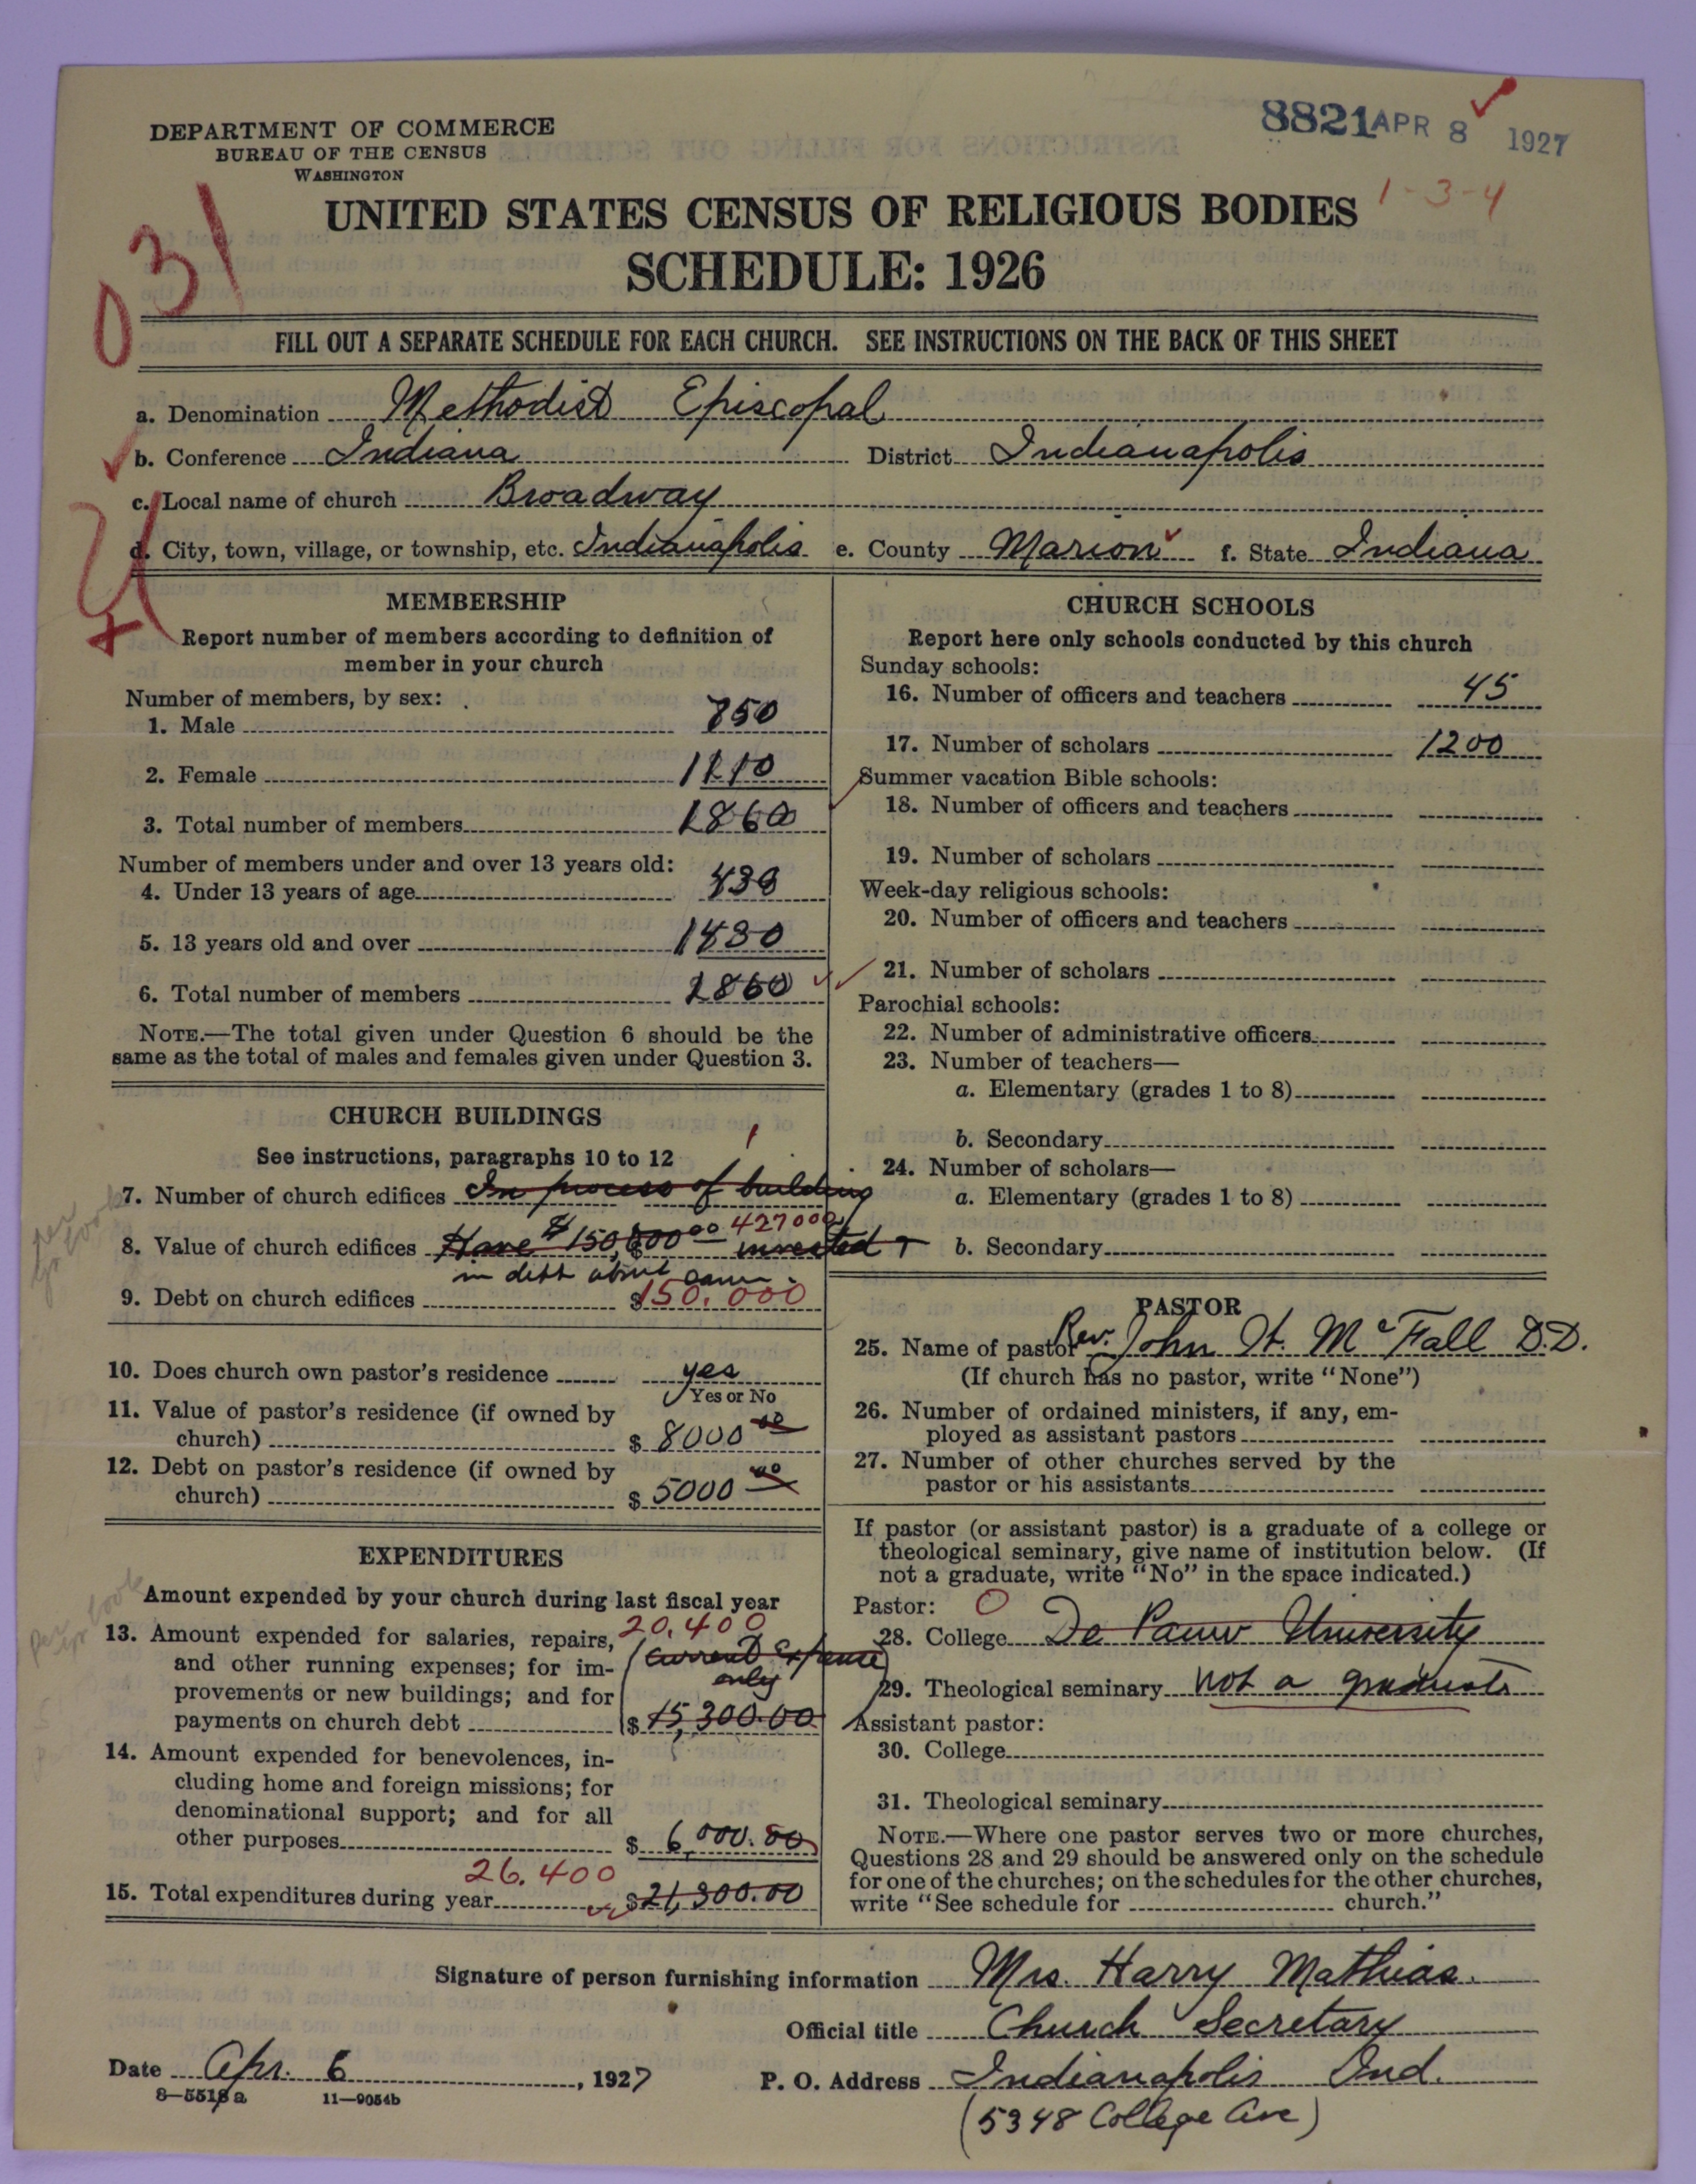 DEPARTMENT OF COMMERCE
BUREAU OF THE CENSUS
WASHINGTON
8821 APR 8 1927
1-3-4
031
UNITED STATES CENSUS OF RELIGIOUS BODIES
SCHEDULE: 1926
FILL OUT A SEPARATE SCHEDULE FOR EACH CHURCH. SEE INSTRUCTIONS ON THE BACK OF THIS SHEET
a. Denomination Methodist Episcopal
b. Conference Indiana District Indianapolis
c. Local name of church Broadway
d. City, town, village, or township, etc. Indianapolis e. County Marion f. State Indiana
MEMBERSHIP
Report number of members according to definition of
member in your church
Number of members, by sex:
1. Male 750
2. Female 1110
3. Total number of members 1860
Number of members under and over 13 years old:
4. Under 13 years of age 430
5. 13 years old and over 1430
6. Total number of members 1860
NOTE.—The total given under Question 6 should be the
same as the total of males and females given under Question 3.
CHURCH BUILDINGS
See instructions, paragraphs 10 to 12
1
7. Number of church edifices In process of building
427000
8. Value of church edifices Have $150,000 00 invested +
in debt about same.
9. Debt on church edifices $150,000
10. Does church own pastor's residence yes
Yes or No
11. Value of pastor's residence (if owned by
church) $ 8000 00
12. Debt on pastor's residence (if owned by
church) $ 5000 00
EXPENDITURES
Amount expended by your church during last fiscal year
20,400
13. Amount expended for salaries, repairs,
and other running expenses; for im- (Current Expense
provements or new buildings; and for only
payments on church debt $ 15,300.00
14. Amount expended for benevolences, in-
cluding home and foreign missions; for
denominational support; and for all
other purposes $ 6,000.00
26,400
15. Total expenditures during year $21,300.00
CHURCH SCHOOLS
Report here only schools conducted by this church
Sunday schools:
16. Number of officers and teachers 45
17. Number of scholars 1200
Summer vacation Bible schools:
18. Number of officers and teachers
19. Number of scholars
Week-day religious schools:
20. Number of officers and teachers
21. Number of scholars
Parochial schools:
22. Number of administrative officers
23. Number of teachers—
a. Elementary (grades 1 to 8)
b. Secondary
24. Number of scholars—
a. Elementary (grades 1 to 8)
b. Secondary
PASTOR
25. Name of pastor Rev. John W. McFall D.D.
(If church has no pastor, write "None")
26. Number of ordained ministers, if any, em-
ployed as assistant pastors
27. Number of other churches served by the
pastor or his assistants
If pastor (or assistant pastor) is a graduate of a college or
theological seminary, give name of institution below. (If
not a graduate, write "No" in the space indicated.)
Pastor: 0
28. College De Pauw University
29. Theological seminary not a graduate
Assistant pastor:
30. College
31. Theological seminary
NOTE.—Where one pastor serves two or more churches,
Questions 28 and 29 should be answered only on the schedule
for one of the churches; on the schedules for the other churches,
write "See schedule for church."
Signature of person furnishing information Mrs. Harry Mathias.
Official title Church Secretary
Date Apr. 6, 1927 P. O. Address Indianapolis Ind.
8—5518a 11—9054b
(5348 College Ave)